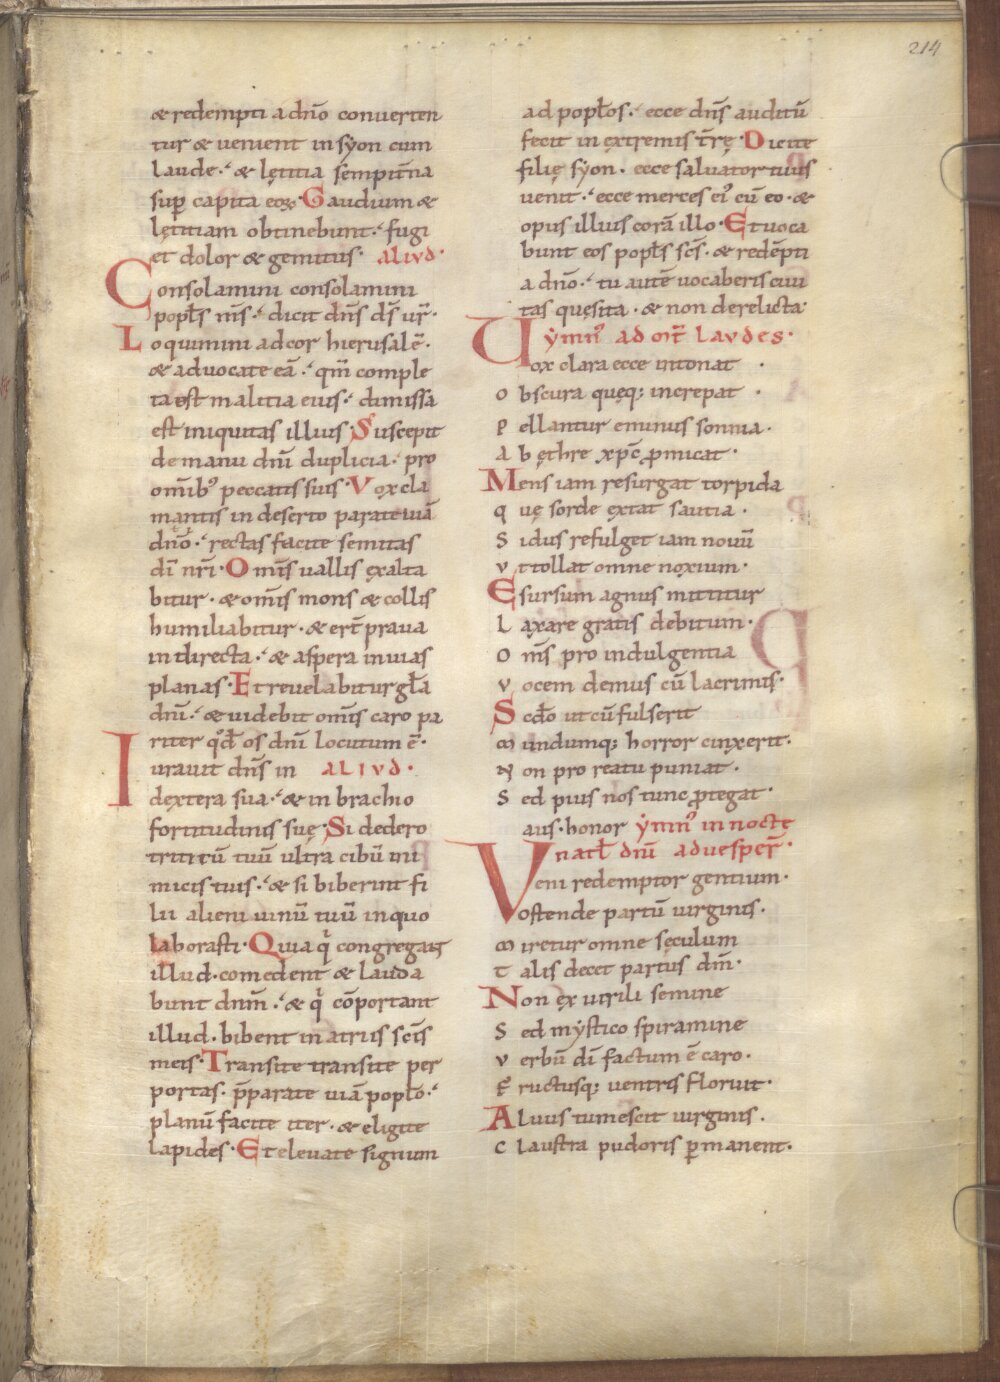 214
& redempti a dn̄o converten
tur & uenient in sẏon cum
laude. & lętitia sempit̄na
suꝑ capita eoꝝ. Gaudium &
lętitiam obtinebunt. fugi
et dolor & gemitus. ALIVD.
Consolamini consolamini
popl̄s m̄s. dicit dn̄s ds̄ ur̄.
Loquimini ad cor hierusalē.
& aduocate eā. qm̄ comple
ta est malitia eius. dimissa
est iniquitas illius. Suscepit
de manu dn̄i duplicia. pro
omib; peccatis suis. Vox cla
mantis in deserto parate uiā
dn̄o. rectas facite semitas
dī nr̄i. Omīs uallis exalta
bitur. & omīs mons & collis
humiliabitur. & er̄t praua
in directa. & aspera in uias
planas. Et reuelabitur gl̄a
dn̄i. & uidebit omīs caro pa
riter qđ os dn̄i locutum ē.
Iurauit dn̄s in ALIVD.
dextera sua. & in brachio
fortitudinis suę. Si dedero
triticū tuū ultra cibū ini
micis tuis. & si biberint fi
lii alieni uinū tuū in quo
laborasti. Quia q̄ congregant
illud. comedent & lauda
bunt dnm̄. & q̄ cōportant
illud. bibent in atriis scīs
meis. Transite transite per
portas. p̄parate uiā popl̄o.
planū facite iter. & eligite
lapides. Et eleuate signum
ad popl̄os. ecce dn̄s auditū
fecit in extremis t̄rę. Dicite
filię sẏon. ecce saluator tuus
uenit. ecce merces ei᾽ cū eo. &
opus illius corā illo. Et uoca
bunt eos popl̄s scs̄. & redēpti
a dn̄o. tu autē uocaberis ciui
tas quęsita. & non derelicta.
ẏmn᾽ AD MT̄ LAVDES.
Uox clara ecce intonat.
obscura quęq; increpat.
pellantur eminus somnia.
ab ęthre xp̄c ꝓmicat.
Mens iam resurgat torpida
quę sorde extat saucia.
sidus refulget iam nouū
vt tollat omne noxium.
E sursum agnus mittitur
laxare gratis debitum.
oms̄ pro indulgentia
vocem demus cū lacrimis.
Scđo ut cū fulserit
mundumq; horror cinxerit.
Non pro reatu puniat.
sed pius nos tunc ꝓtegat.
aus. honor ẏmn᾽ in nocte
natl̄ dn̄i ad uesper̄.
Veni redemptor gentium.
ostende partū uirginis.
miretur omne sęculum
talis decet partus dm̄.
Non ex uirili semine
sed mẏstico spiramine
verbū dī factum ē caro.
fructusq; uentris floruit.
Aluus tumescit uirginis.
claustra pudoris ꝑmanent.